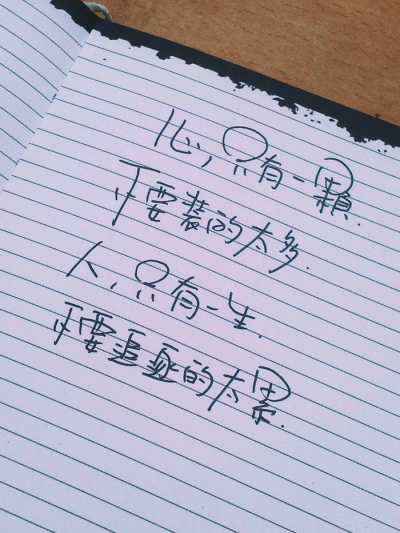 心,只有一顆.
不要裝的太多.
人,只有一生.
不要追逐的太累.